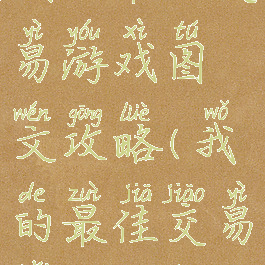 yì yóu xì tú
易游戏图
wén gōng lüè wǒ
文攻略(我
de zuì jiā jiāo yì
的最佳交易